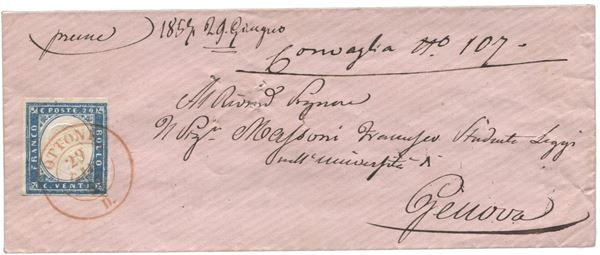 1857 29. Giugno
Convaglia No 107 -
Al
Il Sigr Massoni Francesco Studente Leggi
nell'università di
Genova
C. POSTE. 20
FRANCO
BOLLO
C. VENTI
OTTONE
29